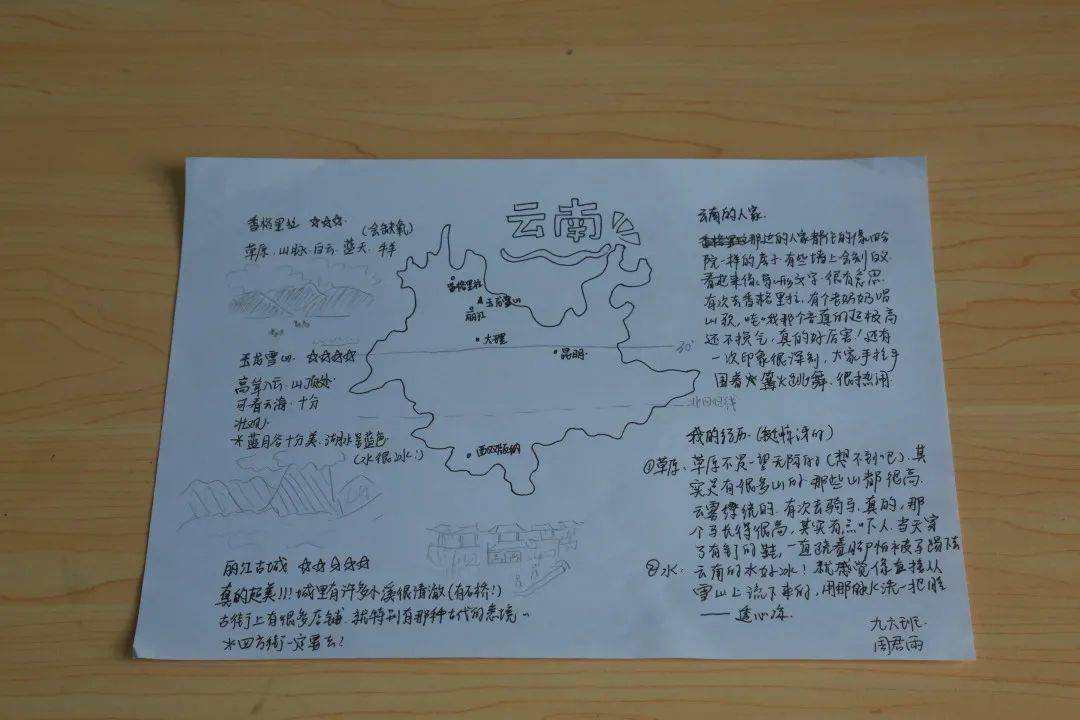 云南
香格里拉 ☆☆☆
(会缺氧)
草原、山脉、白云、蓝天、牛羊
玉龙雪山 ☆☆☆☆
高耸入云,山顶处
可看云海,十分
壮观
*蓝月谷十分美,湖水呈蓝色
(水很冰!)
丽江古城 ☆☆☆☆
真的超美!!!城里有许多小溪很清澈(有石桥!)
古街上有很多店铺,就特别有那种古代的意境~
*四方街一定要去!
香格里拉
玉龙雪山
丽江
大理
昆明
30°
北回归线
西双版纳
云南的人家
那边的人家都住的像四合
院一样的房子有些墙上会刻的
看起来像象形文字,很有意思
有次去香格里拉,有个老奶奶唱
山歌,哇哦那个音真的超极高
还不换气,真的好厉害!还有
一次印象很深刻,大家手拉手
围着篝火跳舞,很热闹
我的经历
①草原:草原不是一望无际的(想不到吧),其
实是有很多山的,那些山都很高
云雾缭绕的,有次去骑马,真的,那
个马长得很高,其实有点吓人,当天穿
了有钉的鞋,一直跷着脚怕被马踢下去
②水:云南的水好冰!就感觉像直接从
雪山上流下来的,用那的水洗一把脸
——透心凉
九六班
周君雨